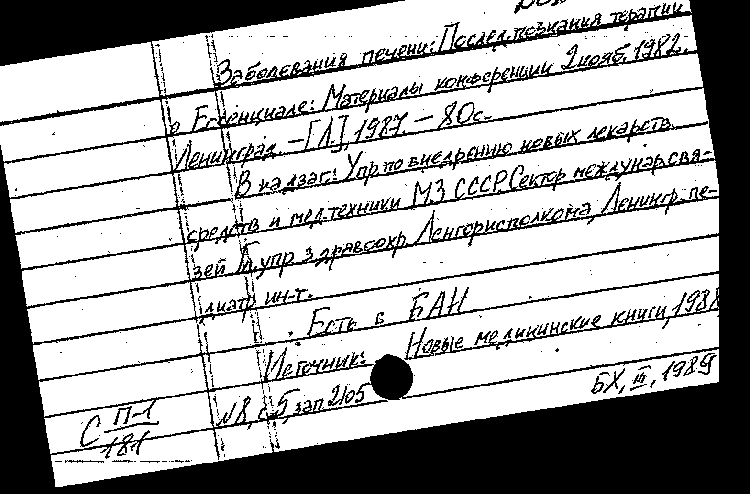 Заболевания печени: Последн. познания терапии
о Ессенциале: Материалы конференции 2 нояб. 1982.
Ленинград. – [Л.], 1987. – 80с.
В надзаг.: Упр. по внедрению новых лекарств.
средств и мед. техники МЗ СССР, Сектор междунар. свя-
зей Гл. упр здравоохр. Ленгорисполкома, Ленингр. пе-
диатр ин-т.
Есть в БАН
Источник: Новые медицинские книги, 1988
N8, с.5, зап 2105
БХ, III, 1989
С П-1
181